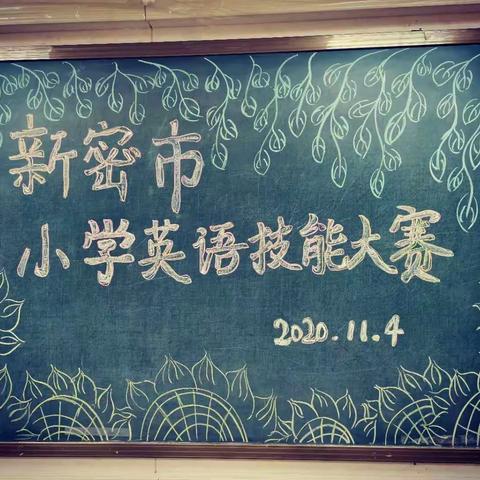 新密市
小学英语技能大赛
2020.11.4